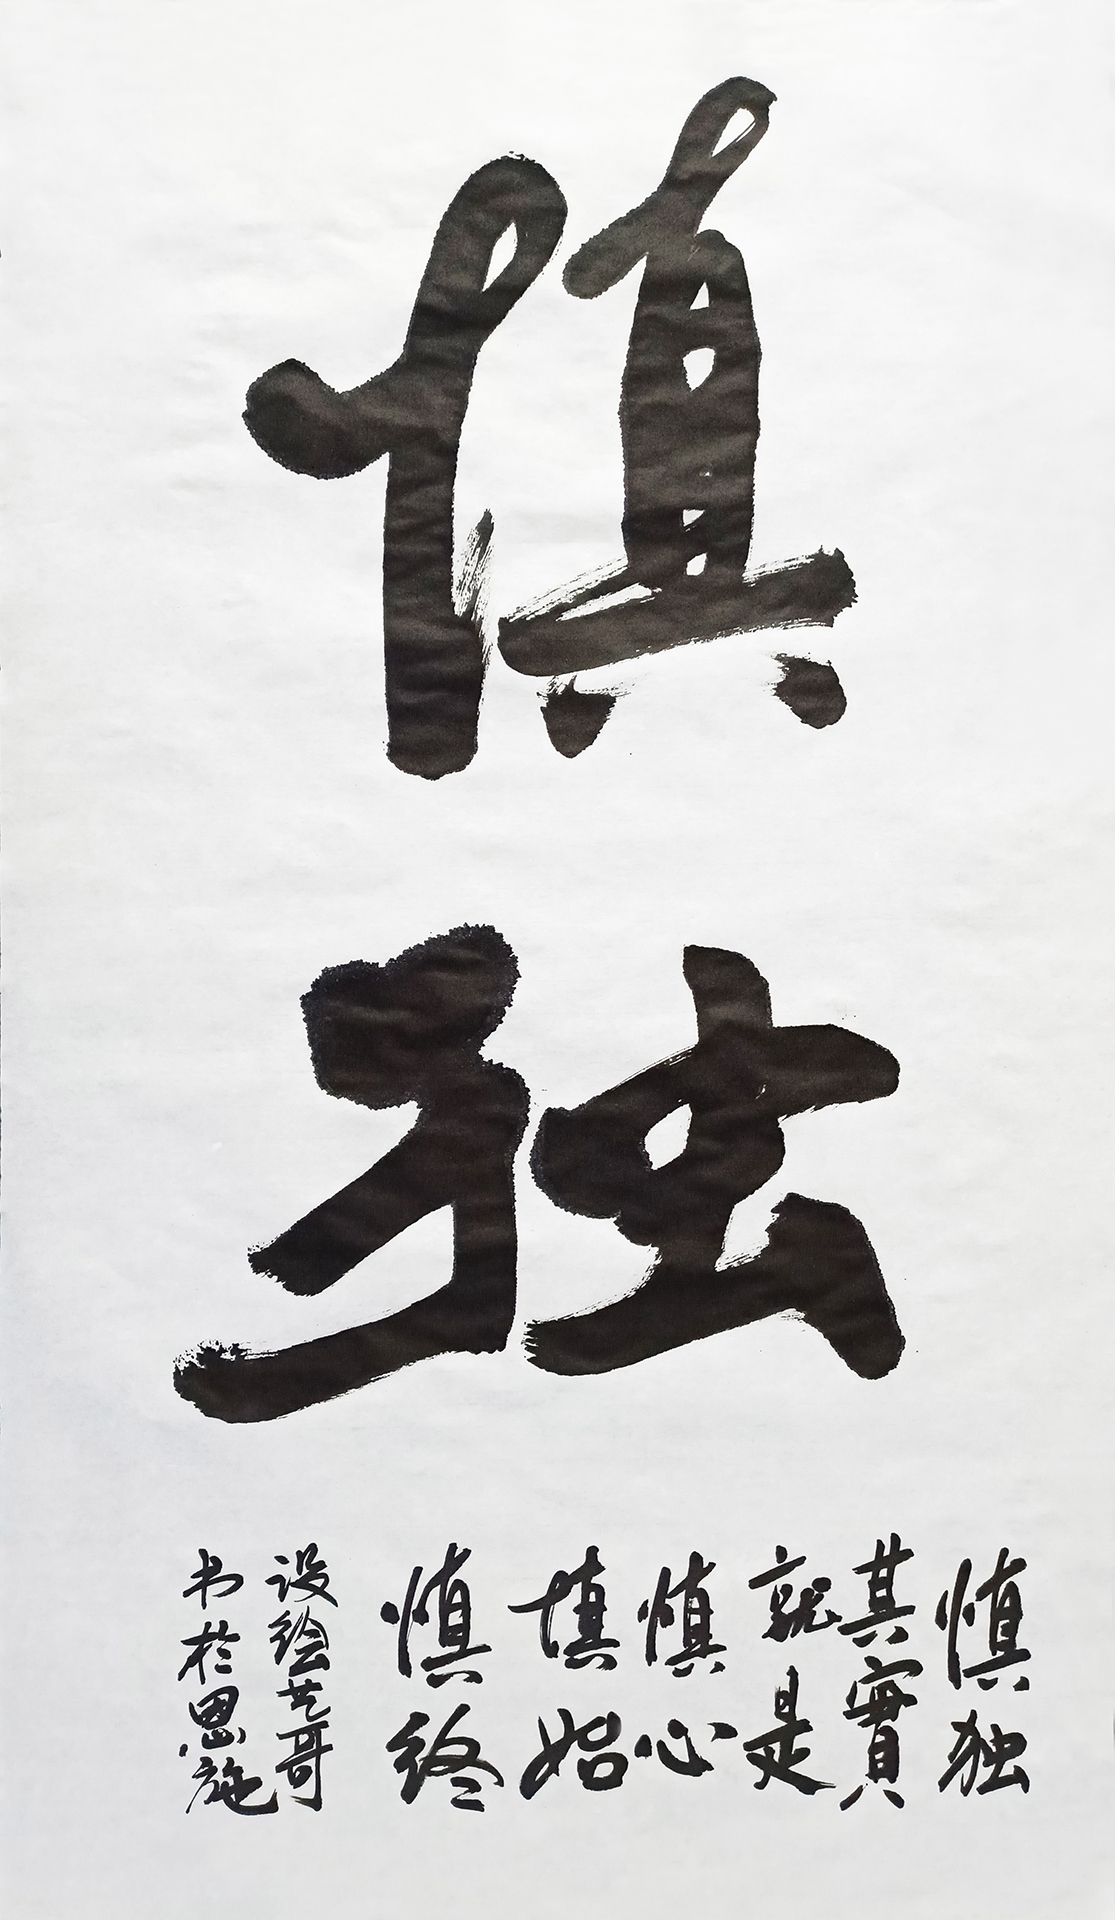 慎
独
慎独
其實
就是
慎心
慎始
慎终
设绘艺哥
书於恩施